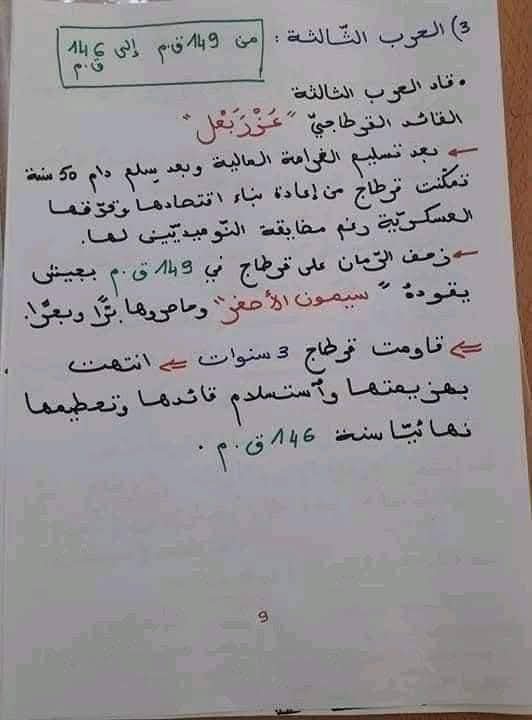 3) الحرب الثّالثة :
من 149 ق.م إلى 146 ق.م
• قاد الحرب الثالثة
القائد القرطاجيّ "عَزْرَبَعْل"
← بعد تسليم الغرامة المالية وبعد سلم دام 50 سنة
تمكّنت قرطاج من إعادة بناء اقتصادها وتفوّقها
العسكريّة رغم مضايقة النّوميديّين لها.
← زحف الرّمان على قرطاج في 149 ق.م بجيش
يقوده "سيبيون الأصغر" وحاصروها برًّا وبحرًا.
⇐ قاومت قرطاج 3 سنوات ⇐ انتهت
بهزيمتها واستسلام قائدها وتحطيمها
نهائيّا سنة 146 ق.م.
9